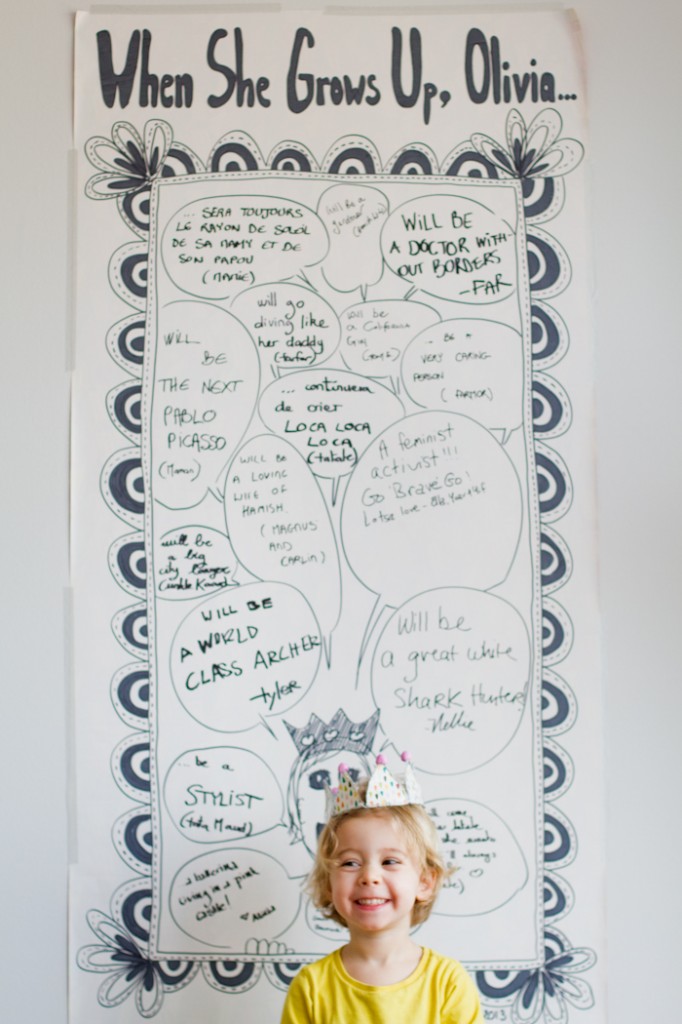 When She Grows Up, Olivia...
... SERA TOUJOURS
LE RAYON DE SOLEIL
DE SA MAMY ET DE
SON PAPOU
(MARIE)
will be a
WILL BE
A DOCTOR WITH-
OUT BORDERS
-FAR
will go
diving like
her daddy
(farfar)
will be
a California
Girl
... BE A
VERY CARING
PERSON
(FARMOR)
WILL
BE
THE NEXT
PABLO
PICASSO
(Maman)
... continuera
de crier
LOCA LOCA
LOCA
(tatate)
A feminist
activist!!!
Go Brave Go!
WILL BE
A LOVING
WIFE OF
HAMISH.
(MAGNUS
AND
CARLIN)
will be
a big
city
WILL BE
A WORLD
CLASS ARCHER
-tyler
Will be
a great white
Shark Hunter!
-Nellie
... be a
STYLIST
(tata Maud)
always
a ballerina
living in a pink
castle!
2013